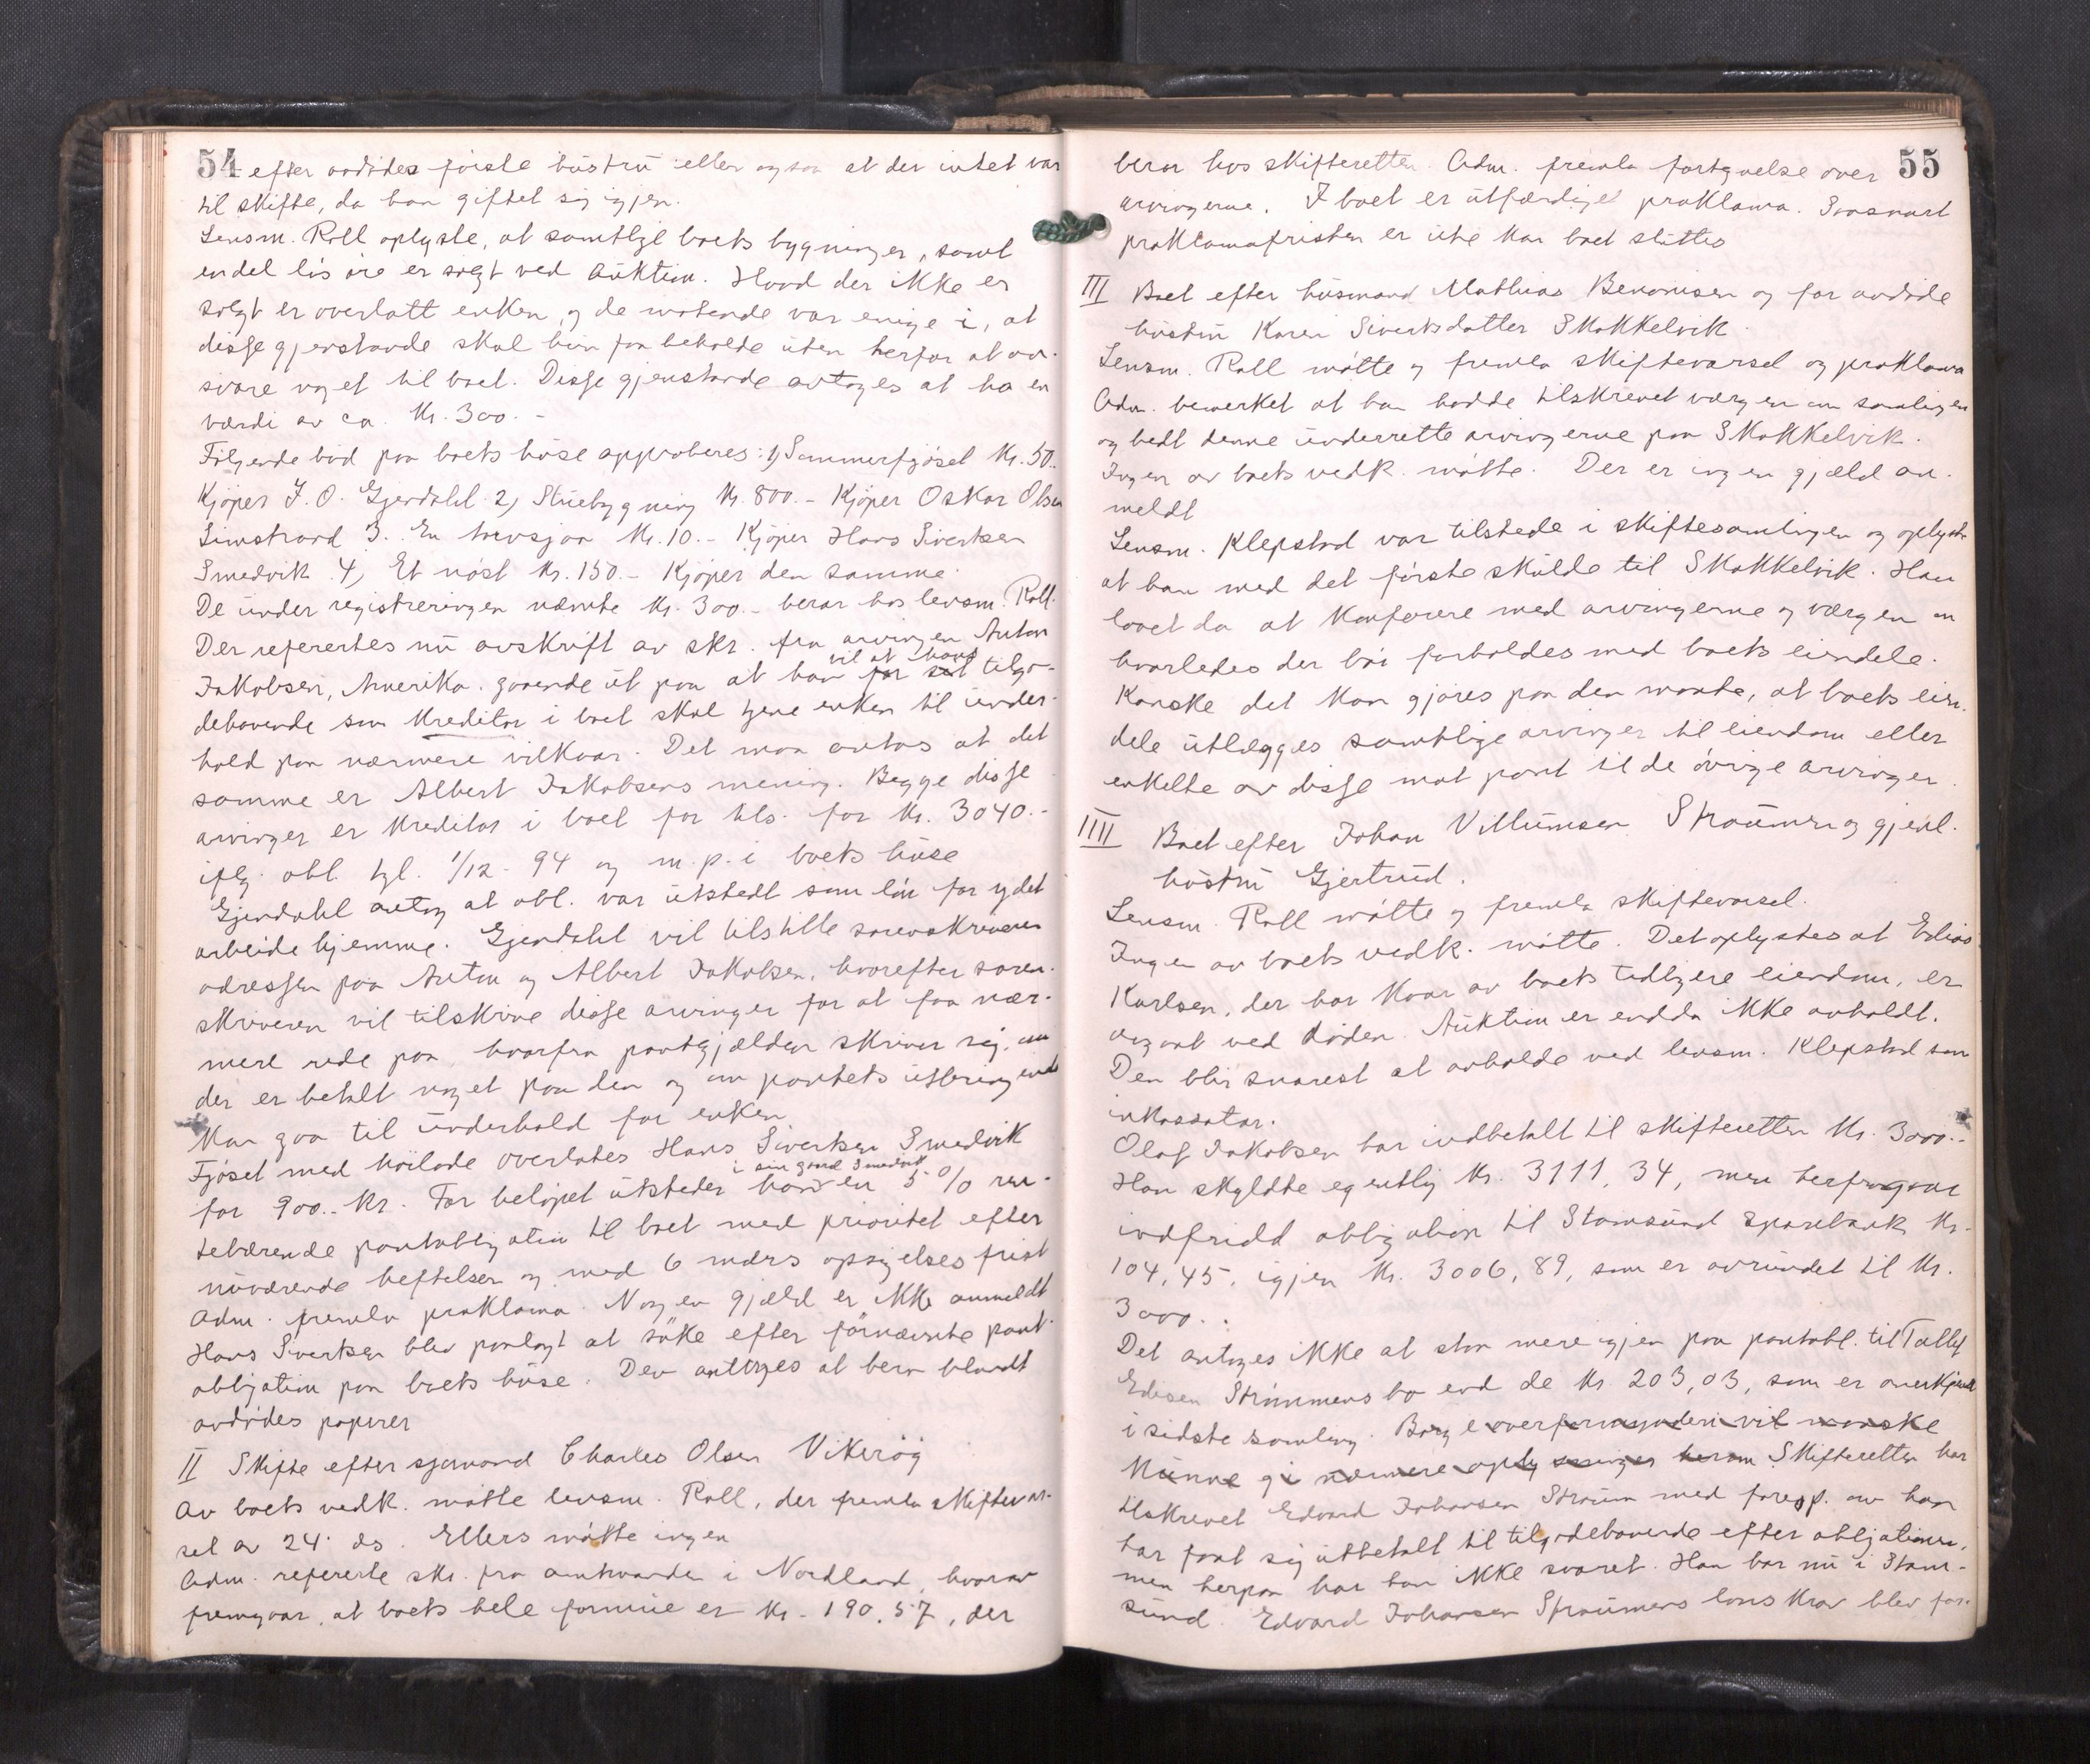 54 efter avdødes første hustru eller ogsaa at der intet var
til skifte, da han giftet sig igjen.
Lensm. Roll oplyste, at samtlige boets bygninger, samt
en del løsøre er solgt ved auktion. Hvad der ikke er
solgt er overlatt enken, og de møtende var enige i, at
disse gjenstande skal hun faa beholde uten herfor at an-
svare noget til boet. Disse gjenstande antages at ha en
værdi av ca. kr. 300.-
Følgende bud paa boets huse approberes: 1) Sommerfjøset kr. 50.-
Kjøper J. O. Gjerdahl 2) Stuebygning kr. 800.- Kjøper Oskar Olsen
Limstrand 3. En torvsjaa kr. 10.- Kjøper Hans Sivertsen
Smedvik 4) Et nøst kr. 150.- Kjøper den samme.
De under registreringen nævnte kr. 300.- beror hos lensm. Roll.
Der referertes nu avskrift av skr. fra arvingen Anton
Jakobsen, Amerika. gaaende ut paa at han vil at hans tilgo-
dehavende som kreditor i boet skal tjene enken til under-
hold paa nærmere vilkaar. Det maa antas at det
samme er Albert Jakobsens mening. Begge disse
arvinger er kreditor i boet for tils. for kr. 3040.-
iflg. obl. tgl. 1/12-94 og m. p. i boets huse
Gjerdahl antog at obl. var utstedt som løn for ydet
arbeide hjemme. Gjerdahl vil tilstille sorenskriveren
adressen paa Anton og Albert Jakobsen, hvorefter soren-
skriveren vil tilskrive disse arvinger for at faa nær-
mere rede paa, hvorfra pantegjælden skriver sig, om
der er betalt noget paa den og om pantets utbringende
kan gaa til underhold for enken
Fjøset med høilade overlates Hans Sivertsen Smedvik
for 900.- kr. For beløpet utsteder han i sin gaard Smedvik en 5 % ren-
tebærende pantobligation til boet med prioritet efter
nuværende heftelser og med 6 mdrs opsigelsesfrist
Adm. fremla proklama. Nogen gjæld er ikke anmeldt
Hans Sivertsen blev paalagt at søke efter førnævnte pant-
obligation paa boets huse. Den antages at bero blandt
avdødes papirer
II Skifte efter sjømand Charles Olsen Vikerøg
Av boets vedk. møtte lensm. Roll, der fremla skiftevar-
sel av 24. ds. Ellers møtte ingen
Adm. refererte skr. fra amtmanden i Nordland, hvorav
fremgaar, at boets hele formue er kr. 190,57, der
55
beror hos skifteretten. Adm. fremla fortegnelse over
arvingerne. I boet er utfærdiget proklama. Saasnart
proklamafristen er ute kan boet sluttes
III Boet efter husmand Mathias Benonisen og før avdøde
hustru Karen Sivertsdatter Skokkelvik.
Lensm. Roll møtte og fremla skiftevarsel og proklama
Adm. bemerket at han hadde tilskrevet værgen om samlingen
og bedt denne underrette arvingerne paa Skokkelvik.
Ingen av boets vedk. møtte. Der er ingen gjæld an-
meldt
Lensm. Klepstad var tilstede i skiftesamlingen og oplyste
at han med det første skulde til Skokkelvik. Han
lovet da at konferere med arvingerne og værgen om
hvorledes der bør forholdes med boets eiendele.
Kanske det kan gjøres paa den maate, at boets eien-
dele utlægges samtlige arvinger til eiendom eller
enkelte av disse mot pant til de øvrige arvinger.
IIII Boet efter Johan Villumsen Straumen og gjenl.
hustru Gjertrud.
Lensm. Roll møtte og fremla skiftevarsel.
Ingen av boets vedk. møtte. Det oplystes at Edias
Karlsen, der har kaar av boets tidligere eiendom, er
avgaat ved døden. Auktion er endda ikke avholdt.
Den blir snarest at avholde ved lensm. Klepstad som
inkassator.
Olaf Jakobsen har indbetalt til skifteretten kr. 3000.-
Han skyldte egentlig kr. 3111,34, men herfra gaar
indfridd obligation til Stamsund Sparebank kr.
104,45, igjen kr. 3006,89, som er avrundet til kr.
3000.-
Det antages ikke at staa mere igjen paa pantobl. til Tollef
Edisen Strømmens bo end de kr. 203,03, som er anerkjendt
i sidste samling. Borge overformynderi vil maaske
kunne gi nærmere oplysninger herom Skifteretten har
tilskrevet Edvard Johansen Straum med foresp. om han
har faat sig utbetalt sit tilgodehavende efter obligationen,
men herpaa har han ikke svaret. Han bor nu i Stam-
sund. Edvard Johansen Straumens lønskrav blev for-